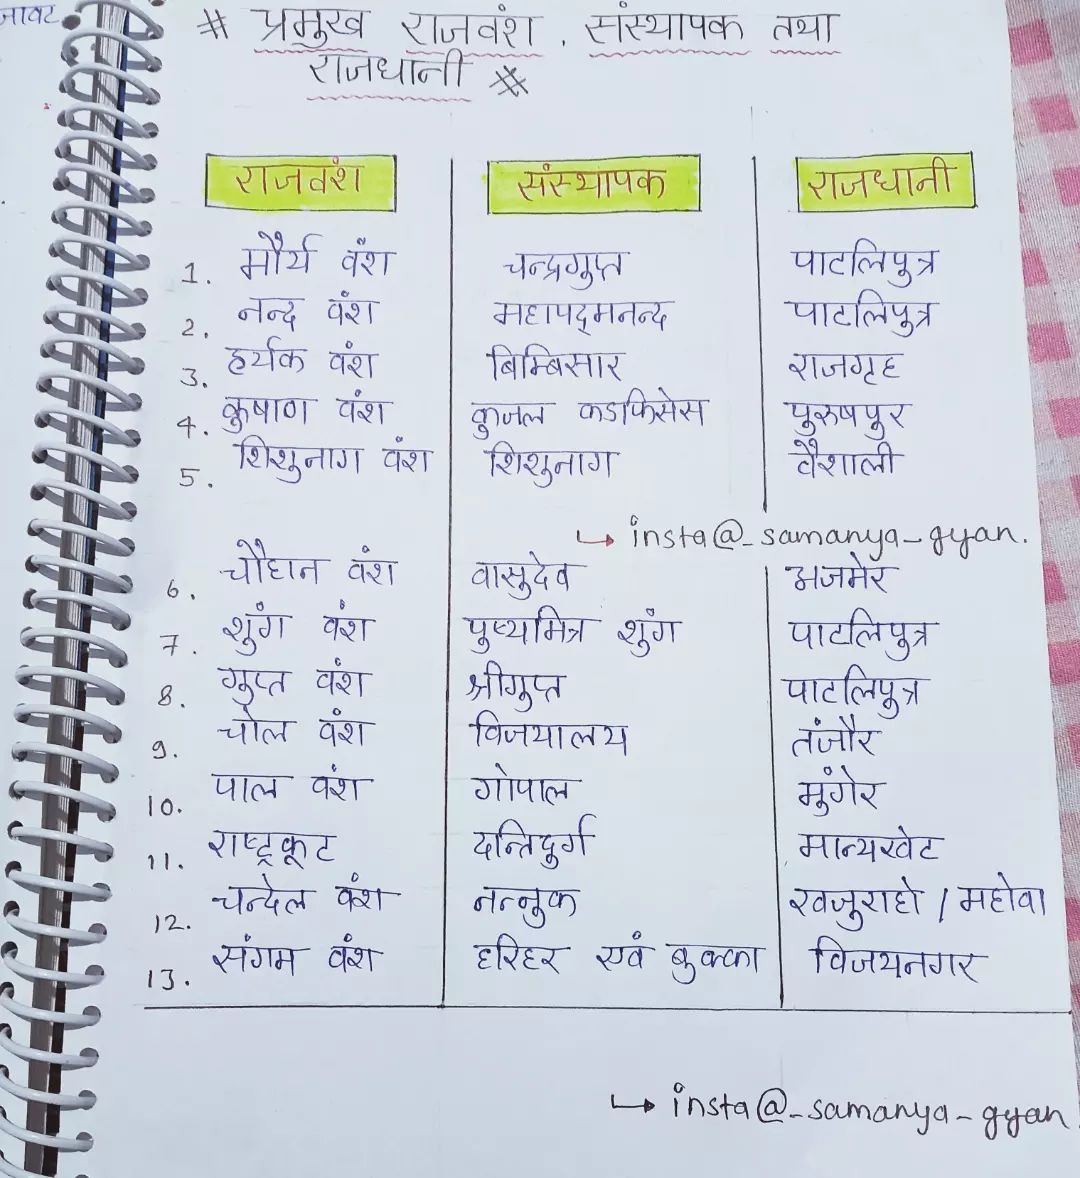 जावट
# प्रमुख राजवंश, संस्थापक तथा
राजधानी #
राजवंश संस्थापक राजधानी
1. मौर्य वंश चन्द्रगुप्त पाटलिपुत्र
2. नन्द वंश महापद्मनन्द पाटलिपुत्र
3. हर्यक वंश बिम्बिसार राजगृह
4. कुषाण वंश कुजल कडफिसेस पुरुषपुर
5. शिशुनाग वंश शिशुनाग वैशाली
↳ insta@_samanya_gyan.
6. चौहान वंश वासुदेव अजमेर
7. शुंग वंश पुष्यमित्र शुंग पाटलिपुत्र
8. गुप्त वंश श्रीगुप्त पाटलिपुत्र
9. चोल वंश विजयालय तंजौर
10. पाल वंश गोपाल मुंगेर
11. राष्ट्रकूट दन्तिदुर्ग मान्यखेट
12. चन्देल वंश नन्नुक खजुराहो / महोवा
13. संगम वंश हरिहर एवं बुक्का विजयनगर
↳ insta@_samanya_gyan